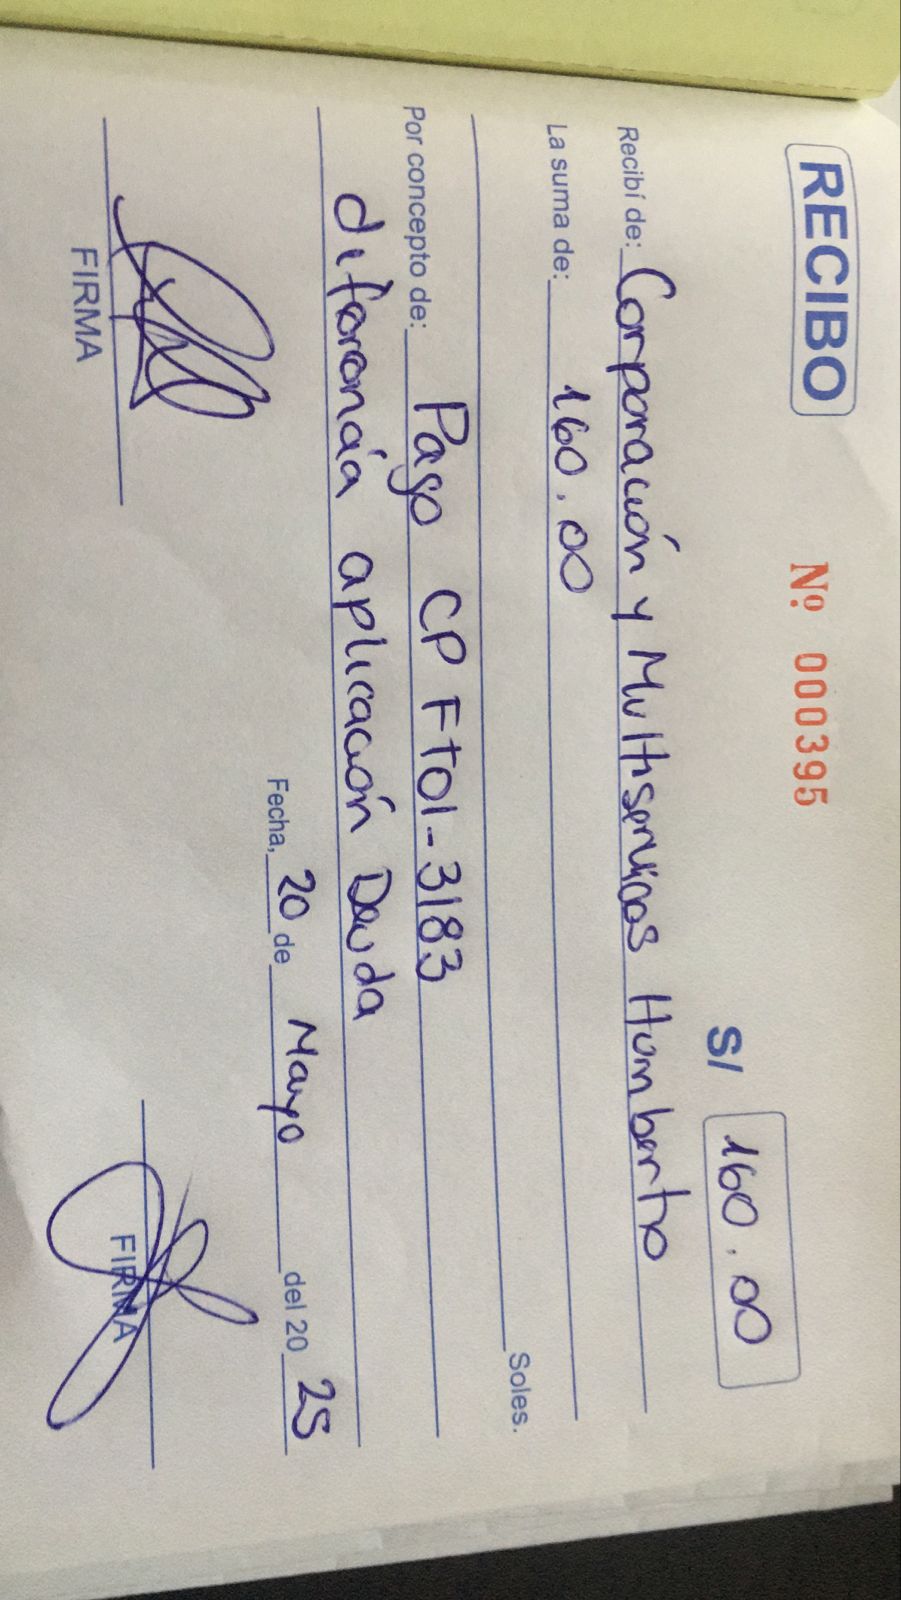 RECIBO Nº 000395 S/ 160.00
Recibí de: Corporación y Multiservicios Humberto
La suma de: 160.00
Soles.
Por concepto de: Pago CP FT01-3183
diferencia aplicación Deuda
Fecha, 20 de Mayo del 2025
FIRMA FIRMA